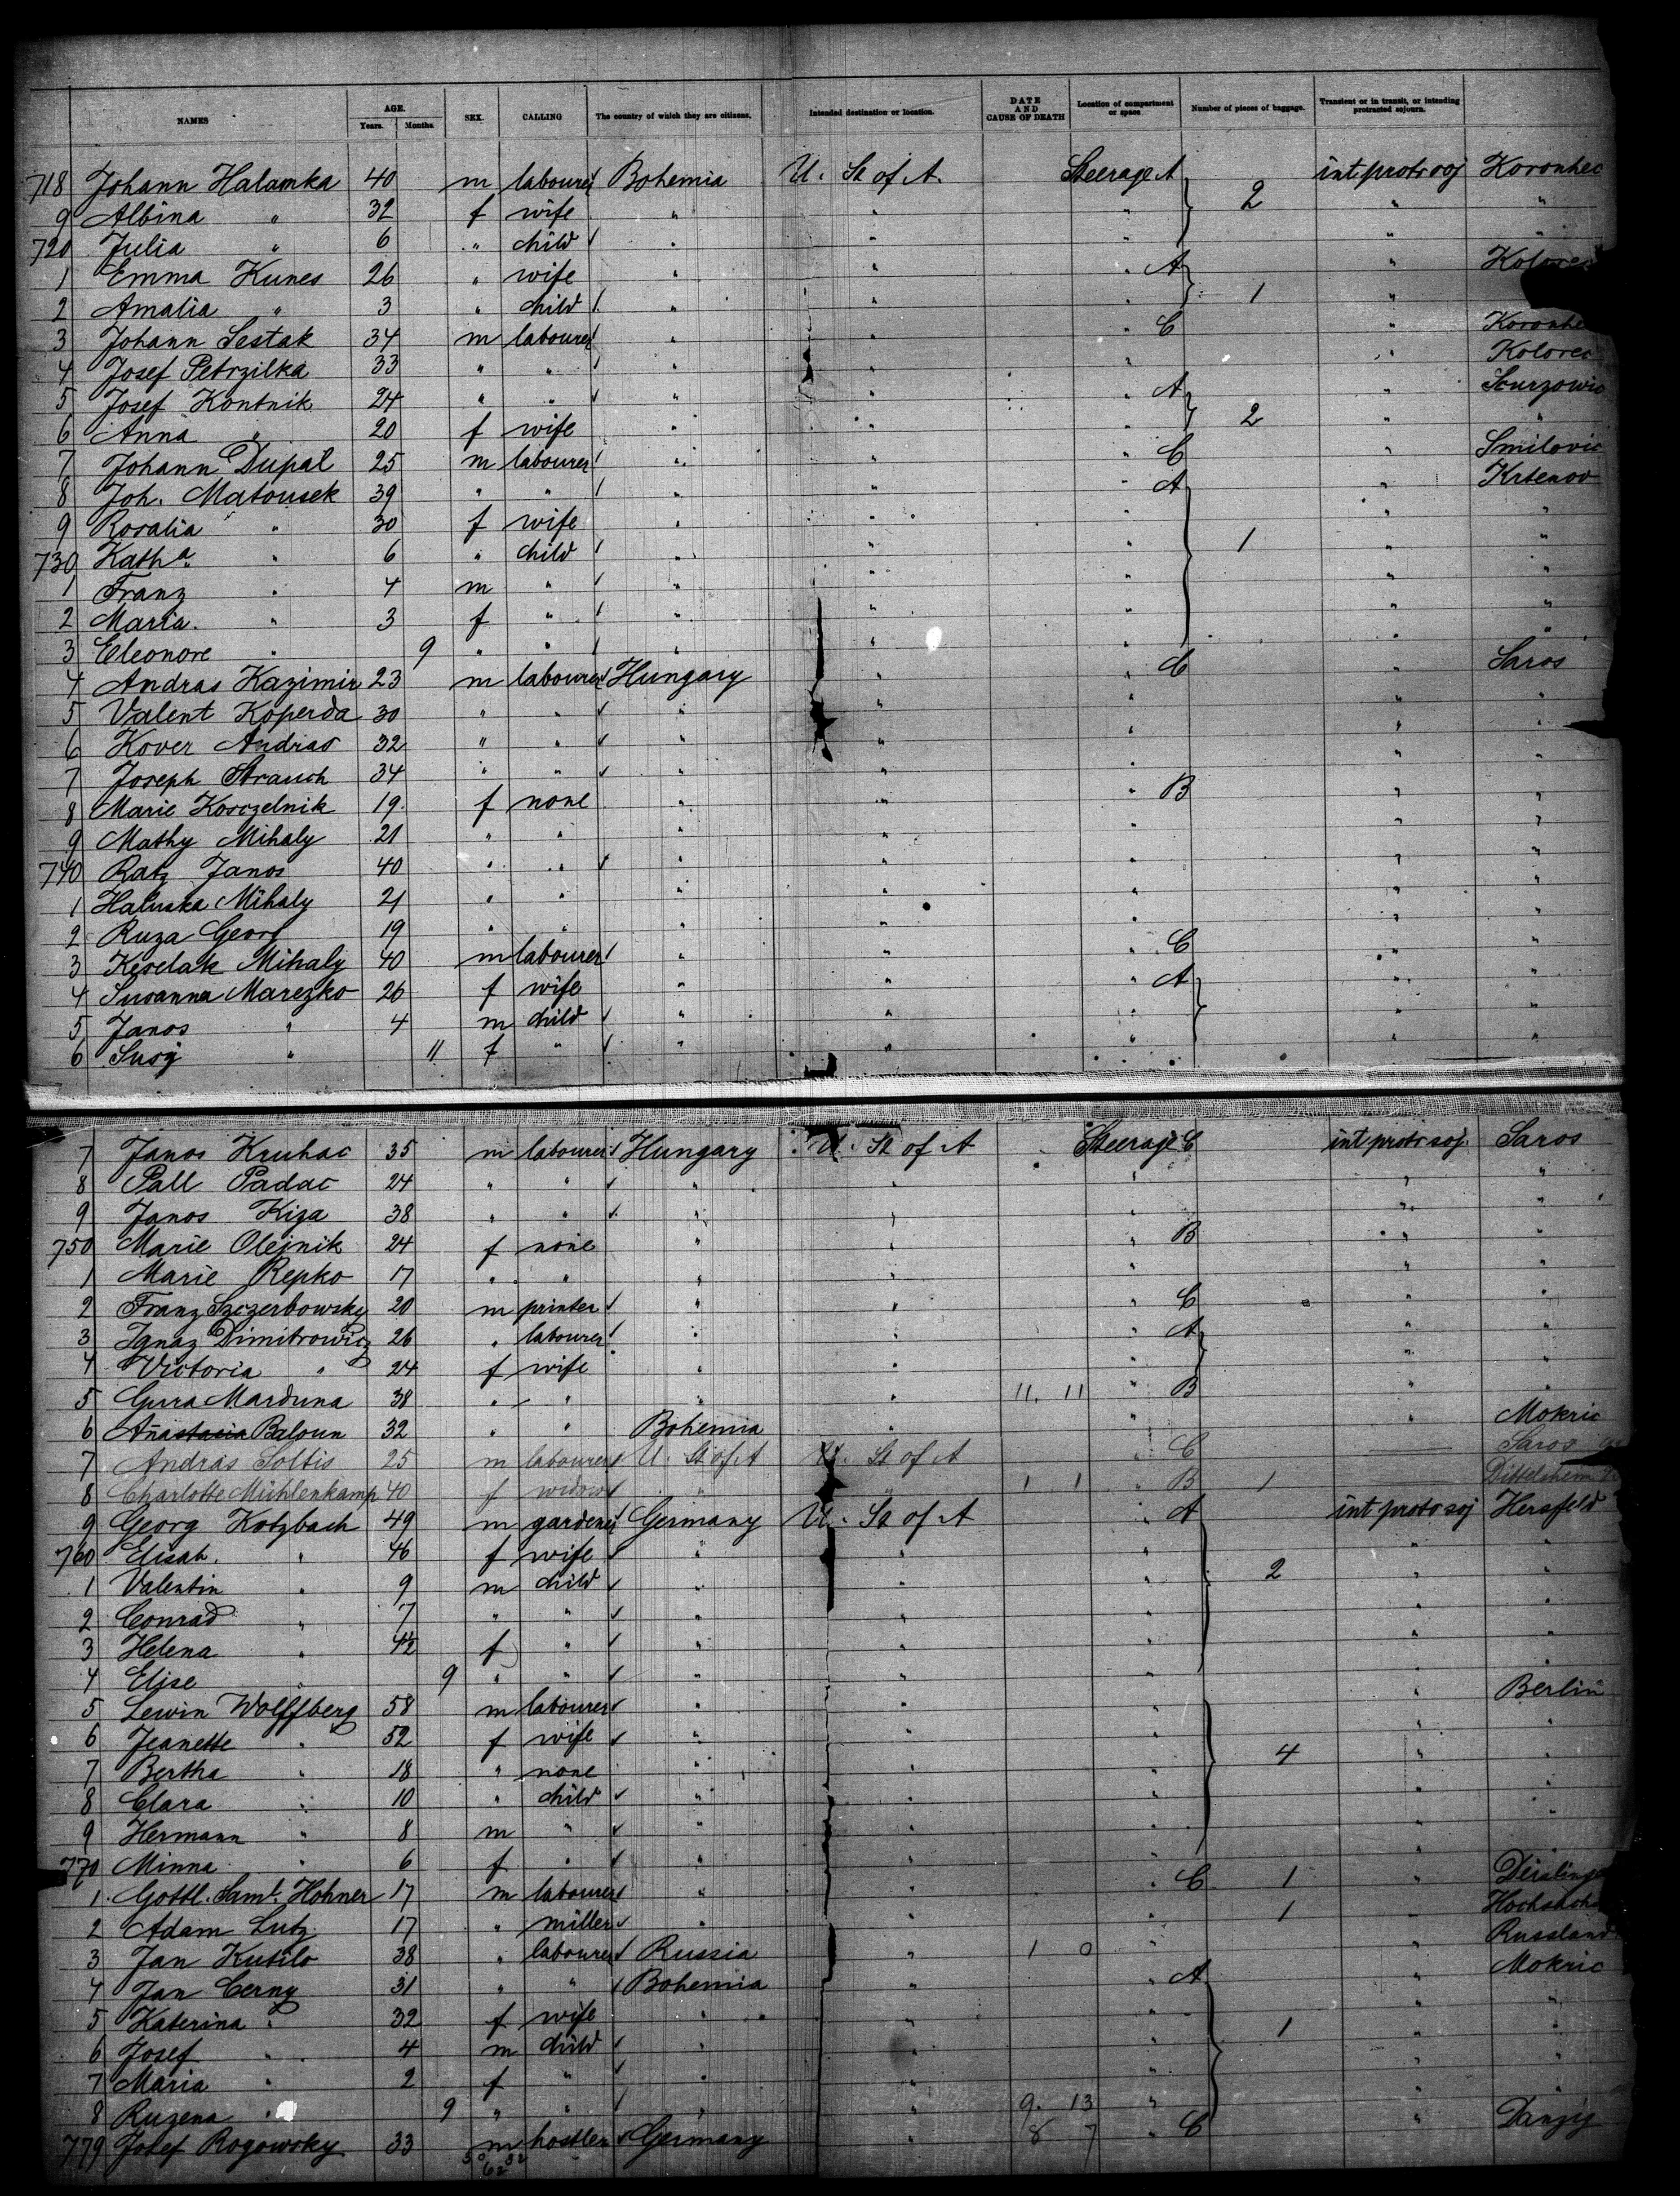 NAMES AGE. Years. Months. SEX. CALLING The country of which they are citizens. Intended destination or location. DATE AND CAUSE OF DEATH Location of compartment or space Number of pieces of baggage. Transient or in transit, or intending protracted sojourn.
718 Johann Halamka 40 m labourer Bohemia U. St of A. Steerage A 2 int protr soj Koronhec
9 Albina " 32 f wife " " " " "
720 Julia " 6 " child " " " " "
1 Emma Kunes 26 " wife " " " A 1 " Kolorec
2 Amalia " 3 " child " " " "
3 Johann Sestak 34 m labourer " " " C " Koronhe
4 Josef Petrzilka 33 " " " " " " Kolorec
5 Josef Kontnik 24 " " " " " A 2 " Scurzowic
6 Anna " 20 f wife " " " " "
7 Johann Dupal 25 m labourer " " " C " Smilovic
8 Joh. Matousek 39 " " " " " A 1 " Krtenov
9 Rosalia " 30 f wife " " " " "
730 Katha " 6 " child " " " " "
1 Franz " 4 m " " " " " "
2 Maria " 3 f " " " " " "
3 Eleonore " 9 " " " " " " "
4 Andras Kazimir 23 m labourer Hungary " " C " Saros
5 Valent Koperda 30 " " " " " " "
6 Kover Andras 32 " " " " " " "
7 Joseph Strauch 34 " " " " " " "
8 Marie Kosczelnik 19 f none " " " B " "
9 Mathy Mihaly 21 " " " " " " "
740 Ratz Janos 40 " " " " " " "
1 Haluska Mihaly 21 " " " " " " "
2 Ruza Georg 19 " " " " " " "
3 Keselak Mihaly 40 m labourer " " " C " "
4 Susanna Marezko 26 f wife " " " A " "
5 Janos " 4 m child " " " " "
6 Susi " 11 f " " " " " "
7 Janos Kruhac 35 m labourer Hungary U. St of A Steerage C int protr soj. Saros
8 Pall Padac 24 " " " " " " "
9 Janos Kiza 38 " " " " " " "
750 Marie Olejnik 24 f none " " " B " "
1 Marie Repko 17 " " " " " " "
2 Franz Szczerbowsky 20 m printer " " " C " "
3 Ignaz Dimitrowicz 26 " labourer " " A " "
4 Victoria " 24 f wife " " " " "
5 Gura Marduna 38 " " " " 11. 11 " B " "
6 Anastasia Baloun 32 " " Bohemia " " " Mokric
7 Andras Soltis 25 m labourer U. St of A U. St of A C Saros
8 Charlotte Mühlenkamp 40 f widow " " 1 1 " B 1 Dittelsheim
9 Georg Kotzbach 49 m gardener Germany U. St of A " A 2 int protr soj Hersfeld
760 Elisab. " 46 f wife " " " " "
1 Valentin " 9 m child " " " " "
2 Conrad " 7 " " " " " " "
3 Helena " 42 f " " " " " "
4 Elise " 9 " " " " " "
5 Lewin Wolffberg 58 m labourer " " " 4 " Berlin
6 Jeanette " 52 f wife " " " " "
7 Bertha " 18 " none " " " " "
8 Clara " 10 " child " " " " "
9 Hermann " 8 m " " " " " "
770 Minna " 6 f " " " " "
1 Gottl. Saml. Hohner 17 m labourer " " " C 1 "
2 Adam Lutz 17 " miller " " " 1 "
3 Jan Kutilo 38 " labourer Russia " 1 0 " " Russland
4 Jan Cerny 31 " " Bohemia " " A 1 " Mokric
5 Katerina " 32 f wife " " " " "
6 Josef " 4 m child " " " " "
7 Maria " 2 f " " " " " "
8 Ruzena " 9 " " " " 9. 13 " " "
779 Josef Rogowsky 33 m hostler Germany " 8 7 " C " Danzig
62